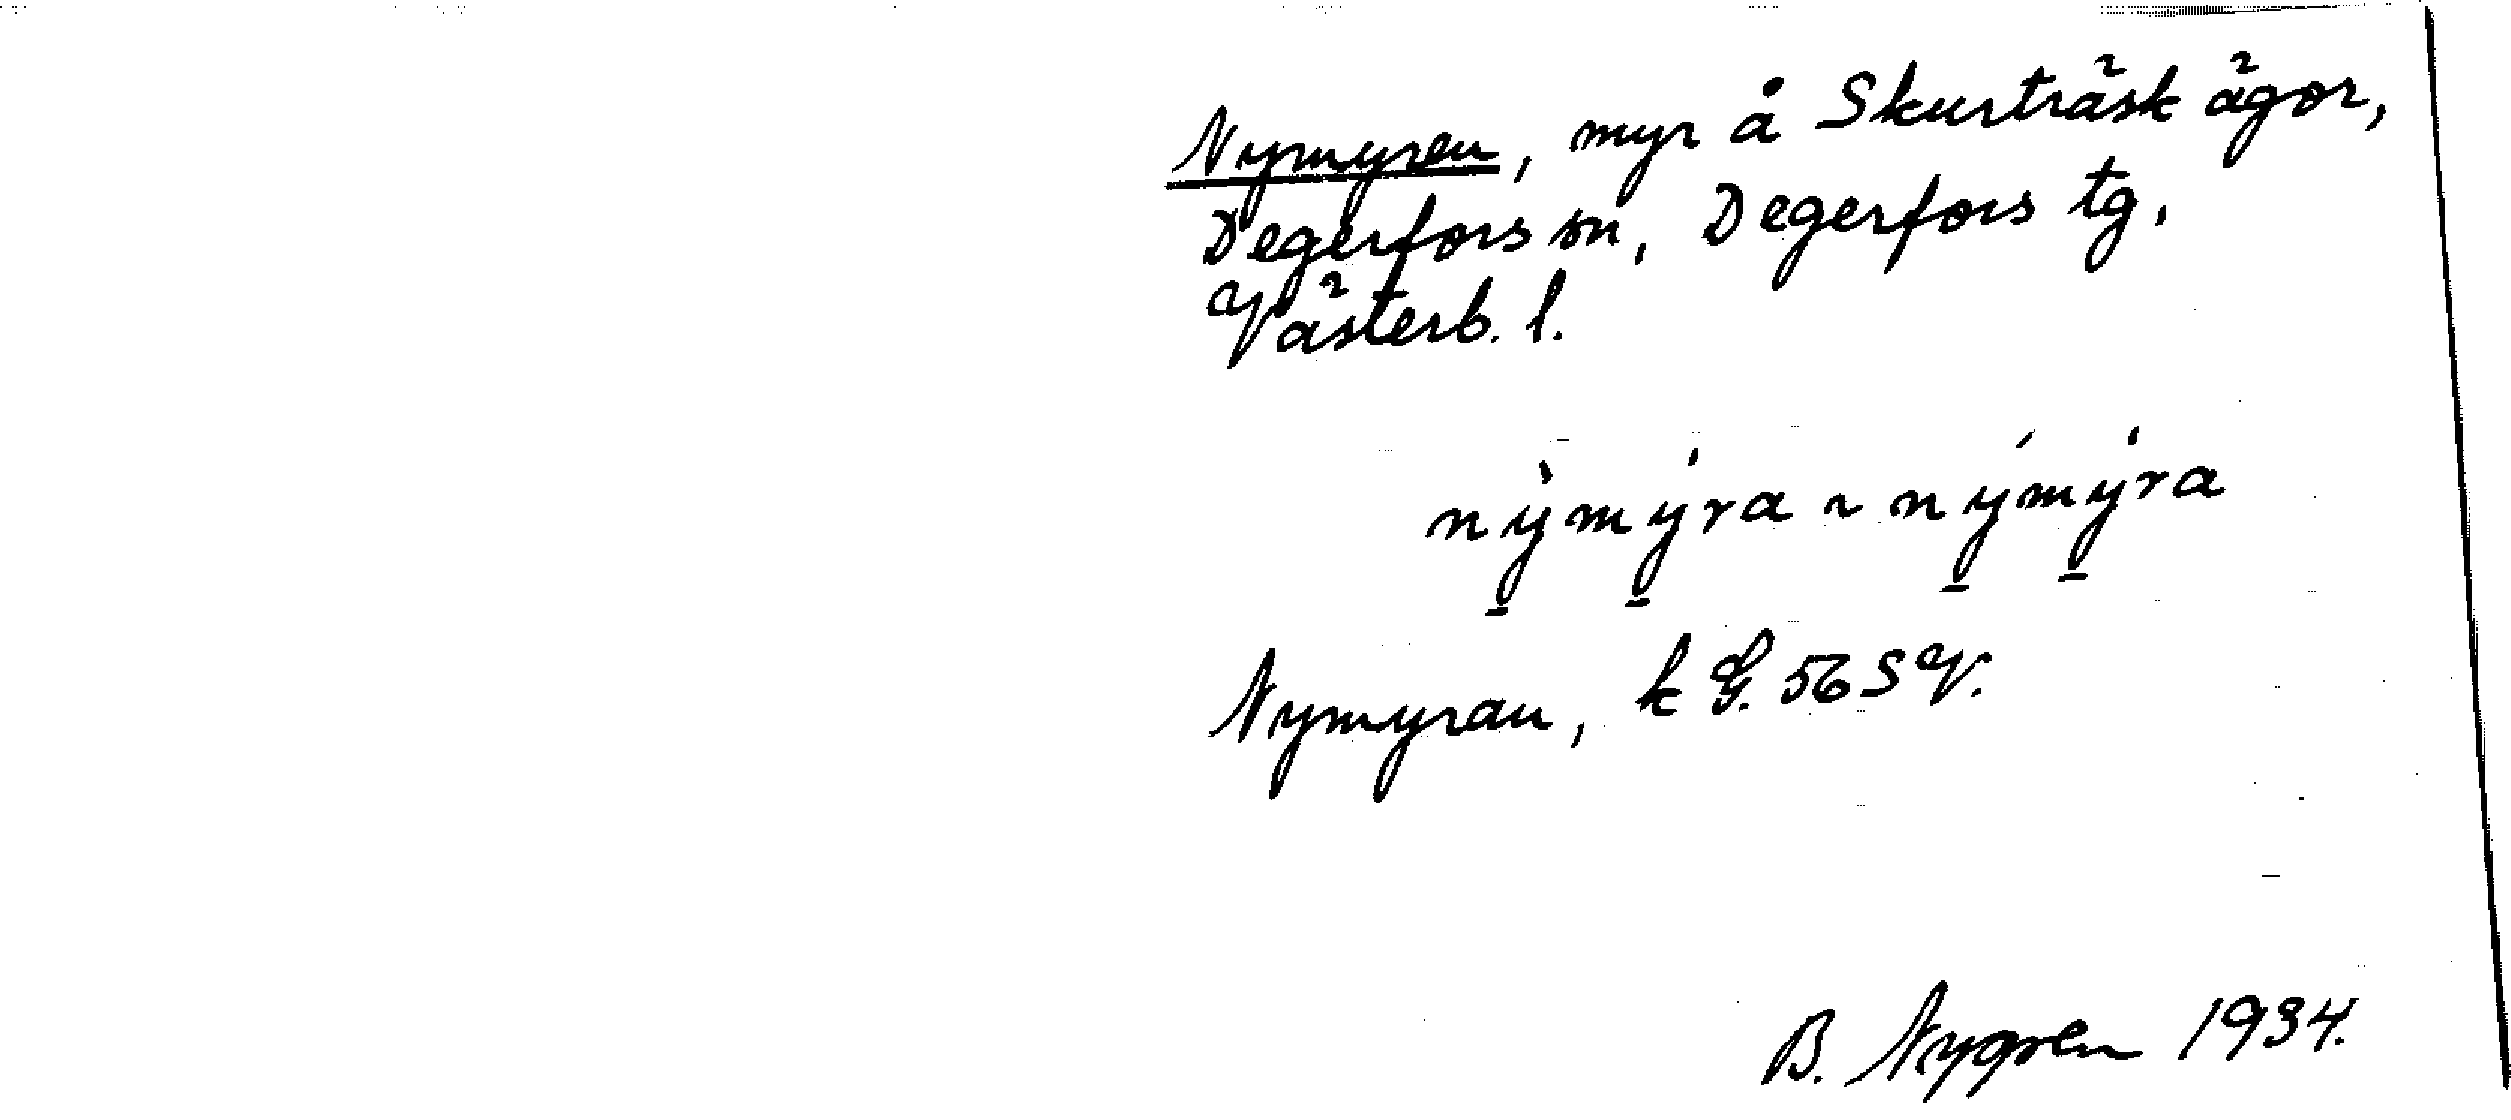 Nymyren, myr å Skurträsk ägor,
Degerfors sn, Degerfors tg.
Västerb. l.
nỳmýra ~ nýmýra
Nymyran, k bl. 56 SV.
B. Nygren 1934.